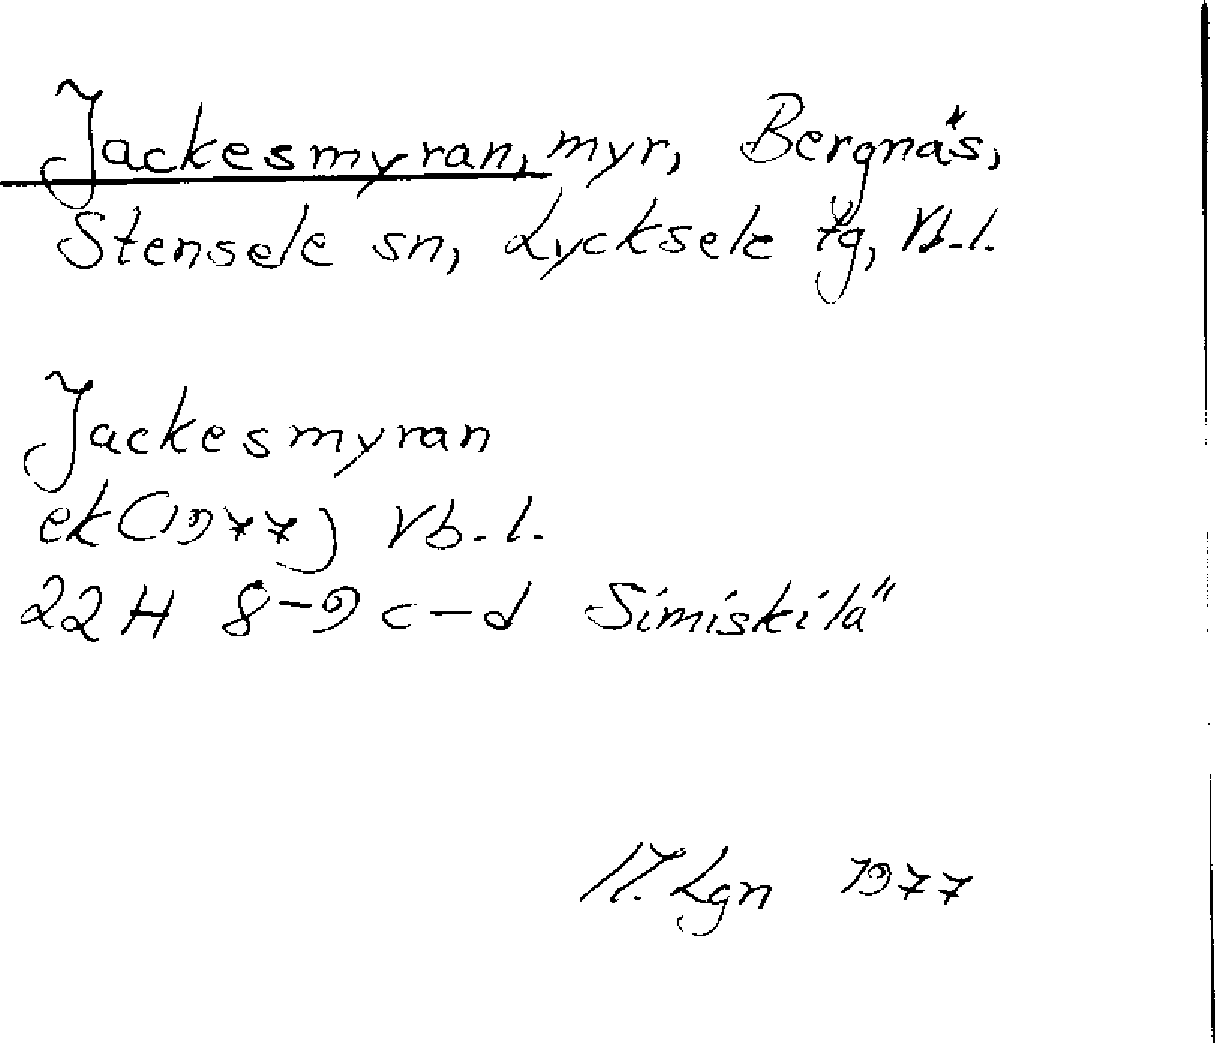 Jackesmyran, myr, Bergnäs,
Stensele sn, Lycksele tg, Vb.l.
Jackesmyran
ek (1977) Vb.l.
22H 8-9 c-d Simiskilä
Lgn 1977